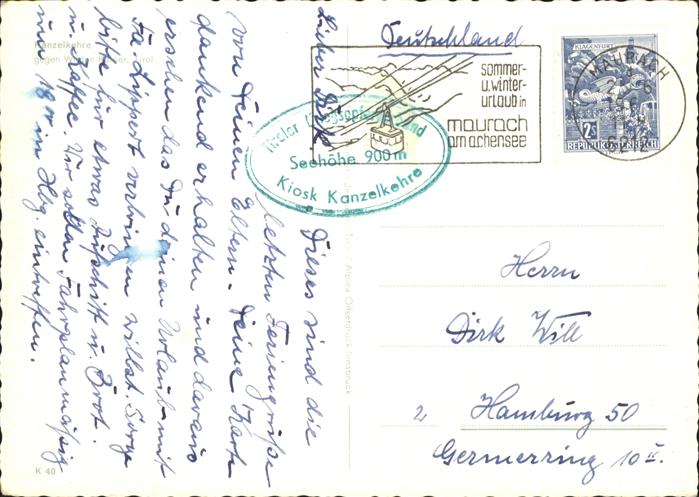 Kanzelkehre
Lieber Dirk!
Dieses sind die
letzten Feriengrüße
von Deinen Eltern. Deine Karte
dankend erhalten und daraus
ersehen das Du deinen Urlaub mit
Fa. Lippert verbringen willst. Sorge
bitte für etwas Aufschnitt u. Brot.
u. Kaffee. Wir sollen Fahrplanmäßig
um 18 in Hbg. eintreffen.
K 40
Deutschland
sommer-
u. winter-
urlaub in
maurach
am achensee
KLAGENFURT
2S
REPUBLIK ÖSTERREICH
MAURACH
Seehöhe 900 m
Kiosk Kanzelkehre
Alpina Offsetdruck Innsbruck
Herrn
Dirk Will
2 Hamburg 50
Germerring 10 II.